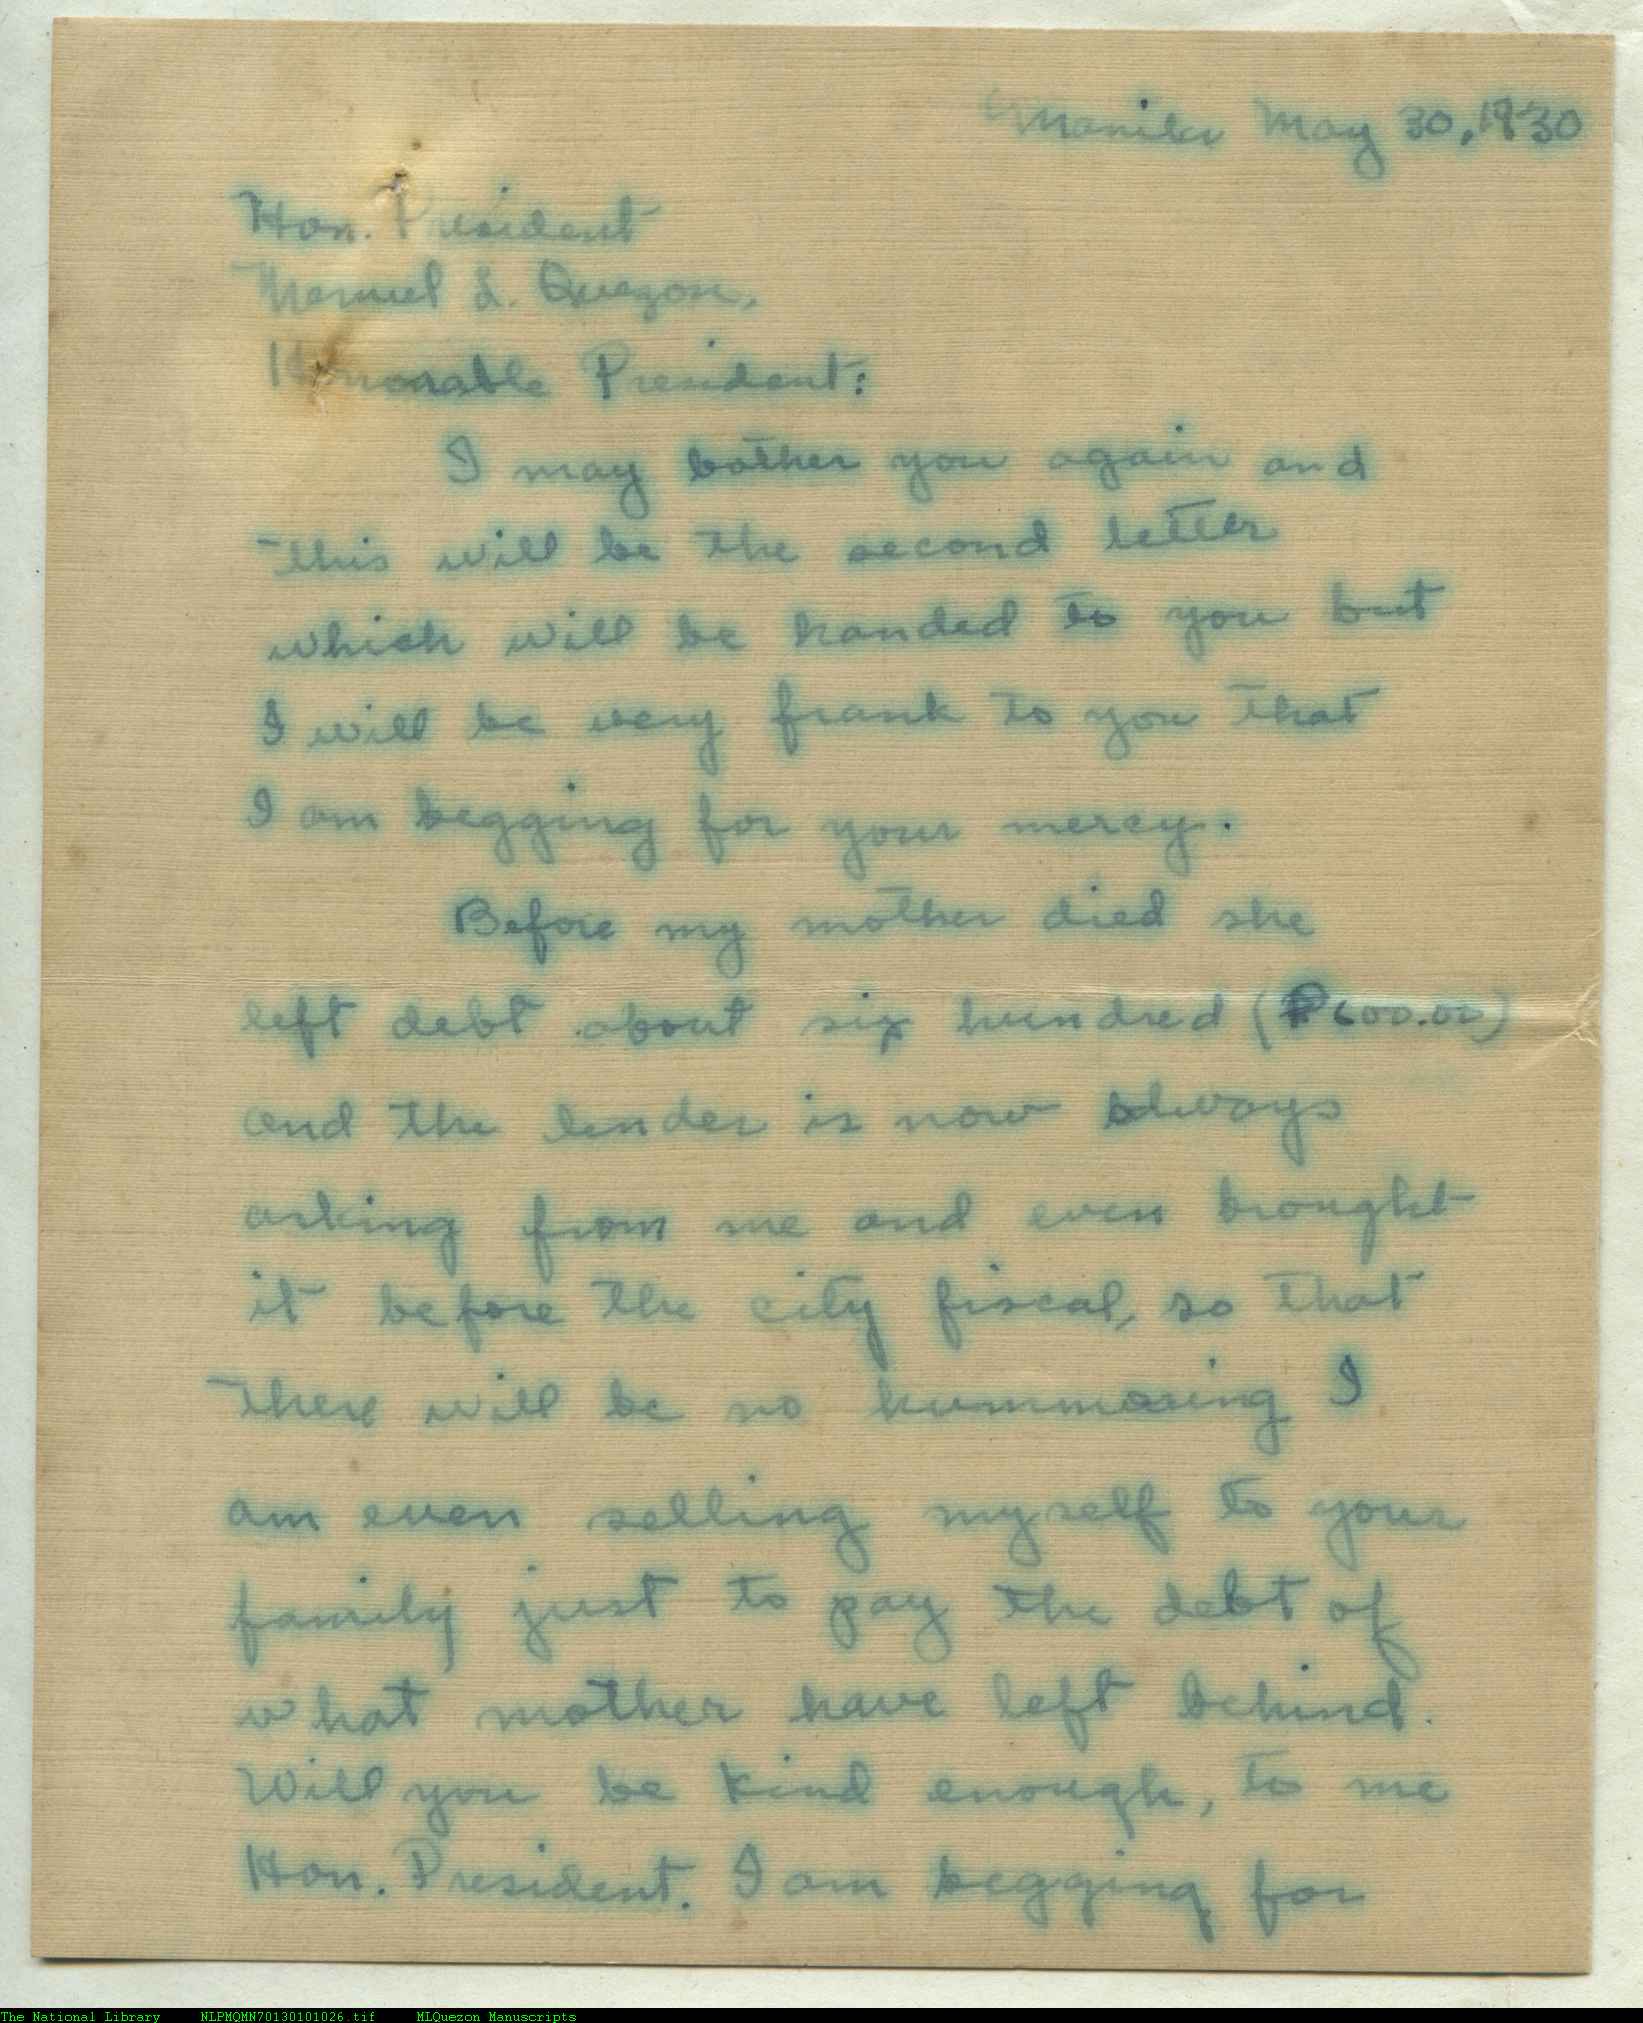 Manila May 30, 1930
Hon. President
Manuel L. Quezon,
Honorable President:
I may bother you again and
this will be the second letter
which will be handed to you but
I will be very frank to you that
I am begging for your mercy.
Before my mother died she
left debt about six hundred (₱600.00)
and the lender is now always
asking from me and even brought
it before the city fiscal, so that
there will be no hummoring I
am even selling myself to your
family just to pay the debt of
what mother have left behind.
Will you be kind enough, to me
Hon. President. I am begging for
The National Library NLPMQMN70130101026.tif MLQuezon Manuscripts